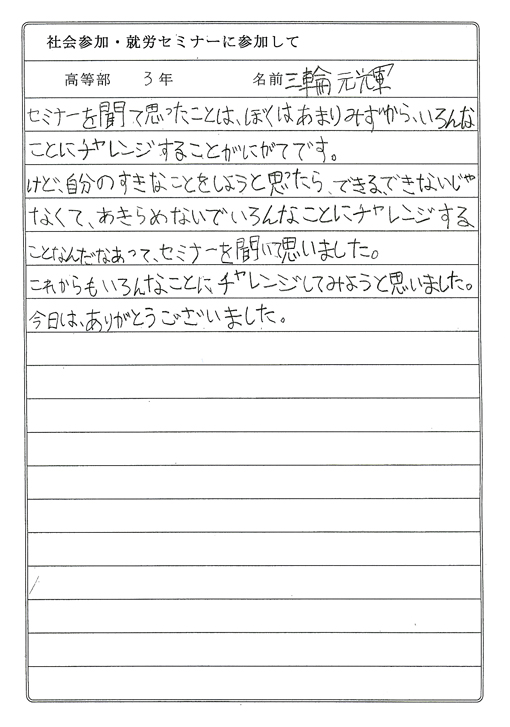 社会参加・就労セミナーに参加して
高等部 3年 名前 三輪 元輝
セミナーを聞て思ったことは、ぼくはあまりみずから、いろんな
ことにチャレンジすることがにがてです。
けど、自分のすきなことをしようと思ったら、できる、できないじゃ
なくて、あきらめないでいろんなことにチャレンジする
ことなんだなあって、セミナーを聞いて思いました。
これからもいろんなことにチャレンジしてみようと思いました。
今日は、ありがとうございました。